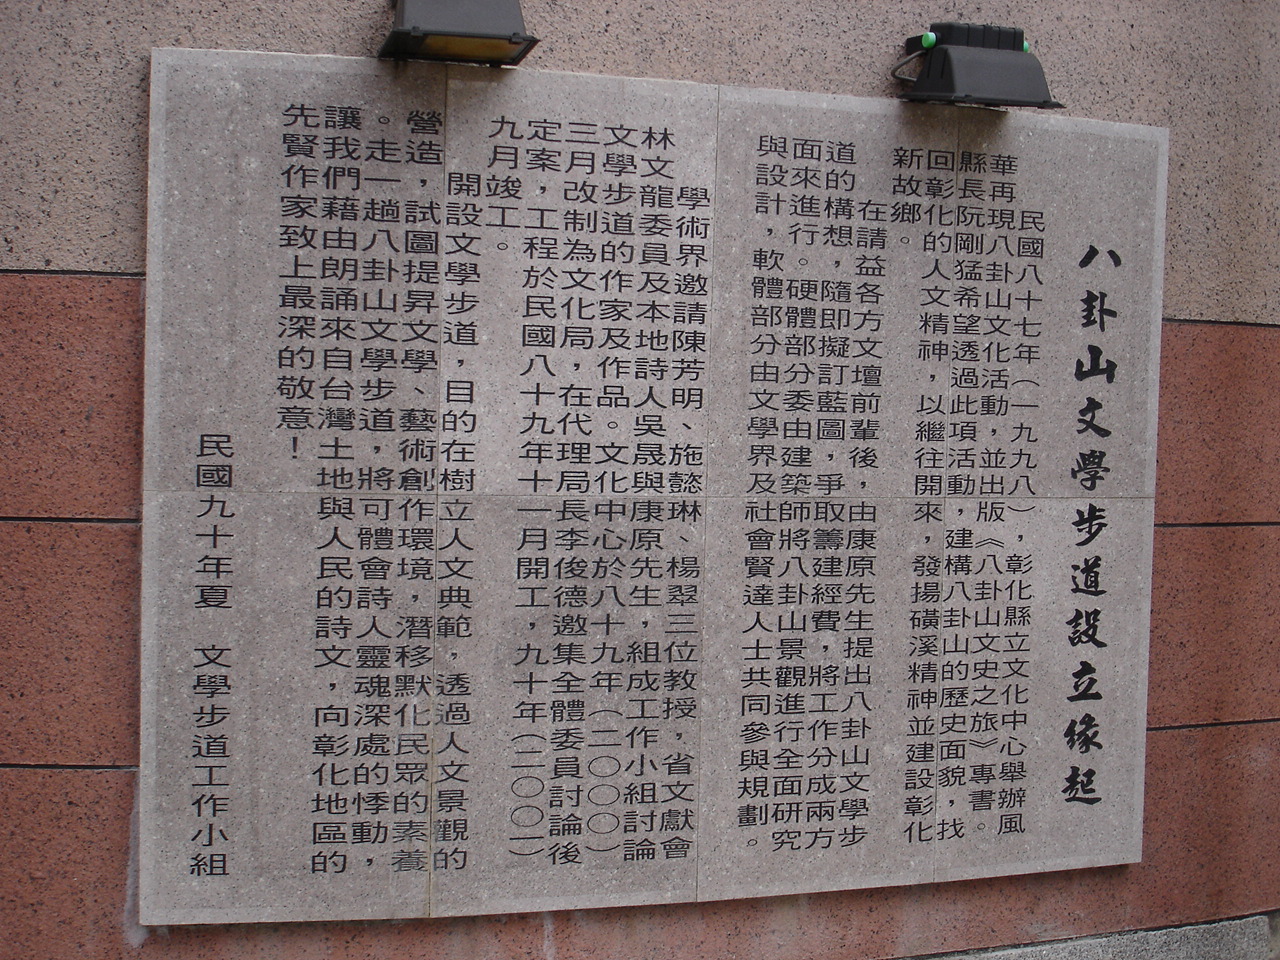 八卦山文學步道設立緣起
民國八十七年（一九九八），彰化縣立文化中心舉辦風
華再現八卦山文化活動，並出版《八卦山文史之旅》專書。
縣長阮剛猛希望透過此項活動，建構八卦山的歷史面貌，找
回彰化的人文精神，以繼往開來，發揚磺溪精神並建設彰化
新故鄉。
在請益各方文壇前輩後，由康原先生提出八卦山文學步
道的構想，隨即擬訂藍圖，爭取籌建經費，將工作分成兩方
面來進行。硬體部分委由建築師將八卦山景觀進行全面研究
與設計，軟體部分由文學界及社會賢達人士共同參與規劃。
學術界邀請陳芳明、施懿琳、楊翠三位教授，省文獻會
林文龍委員及本地詩人吳晟與康原先生，組成工作小組討論
文學步道的作家及作品。文化中心於八十九年（二〇〇〇）
三月改制為文化局，在代理局長李俊德邀集全體委員討論後
定案，工程於民國八十九年十一月開工，九十年（二〇〇一）
九月竣工。
開設文學步道，目的在樹立人文典範，透過人文景觀的
營造，試圖提昇文學、藝術創作環境，潛移默化民眾的素養
。走一趟八卦山文學步道，將可體會詩人靈魂深處的悸動，
讓我們藉由朗誦來自台灣土地與人民的詩文，向彰化地區的
先賢作家致上最深的敬意！
民國九十年夏 文學步道工作小組